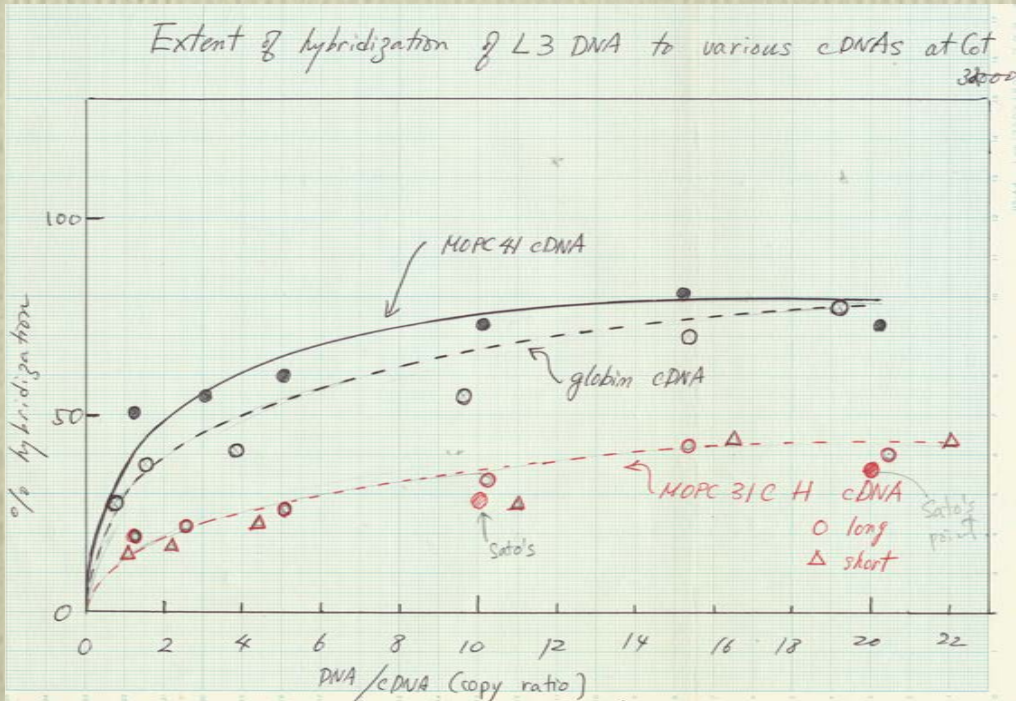 Extent of hybridization of L3 DNA to various cDNAs at Cot
100
50
0
% hybridization
MOPC 41 cDNA
globin cDNA
MOPC 31C H cDNA
O long
△ short
Sato's
Sato's
point
0 2 4 6 8 10 12 14 16 18 20 22
DNA/cDNA (copy ratio)